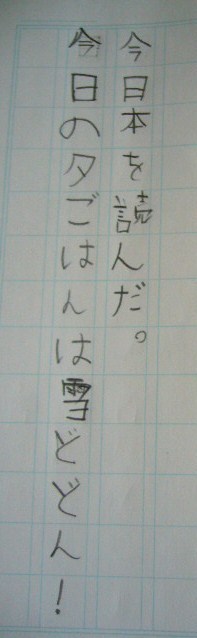 今日本を読んだ。
今日の夕ごはんは雪どどん！